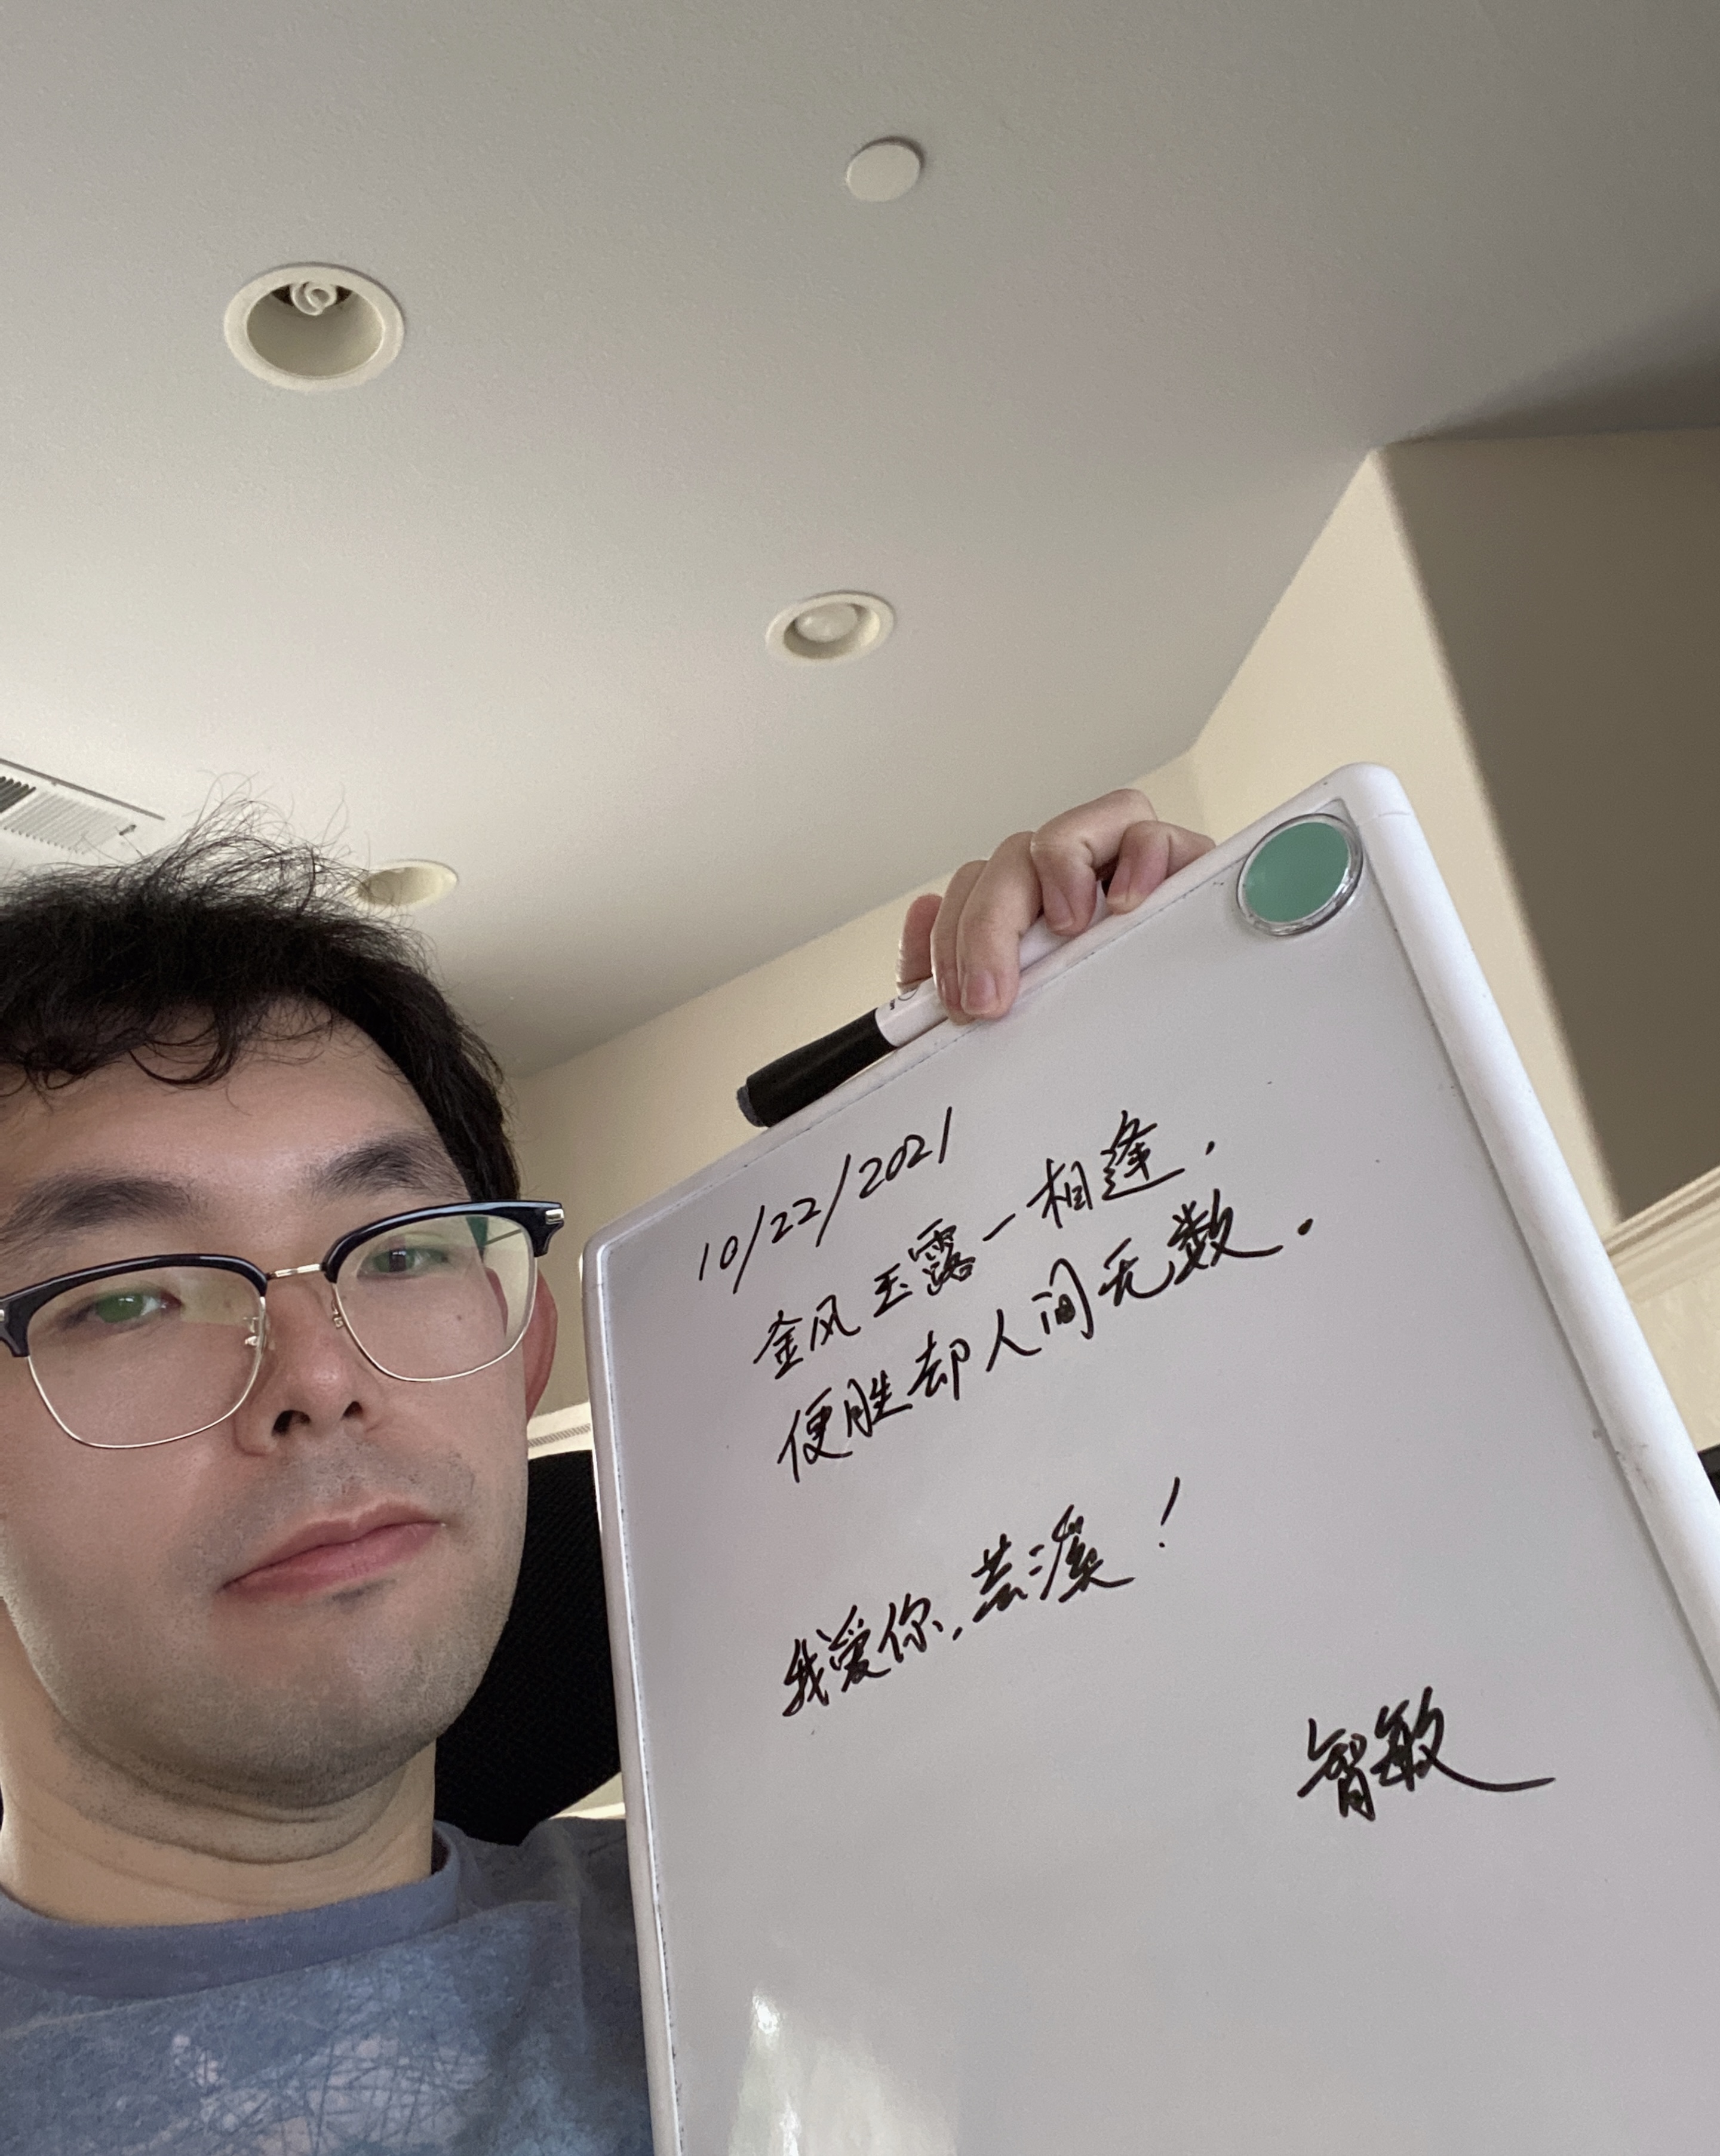 10/22/2021
金风玉露一相逢，
便胜却人间无数．
我爱你，芸溪！
智敏